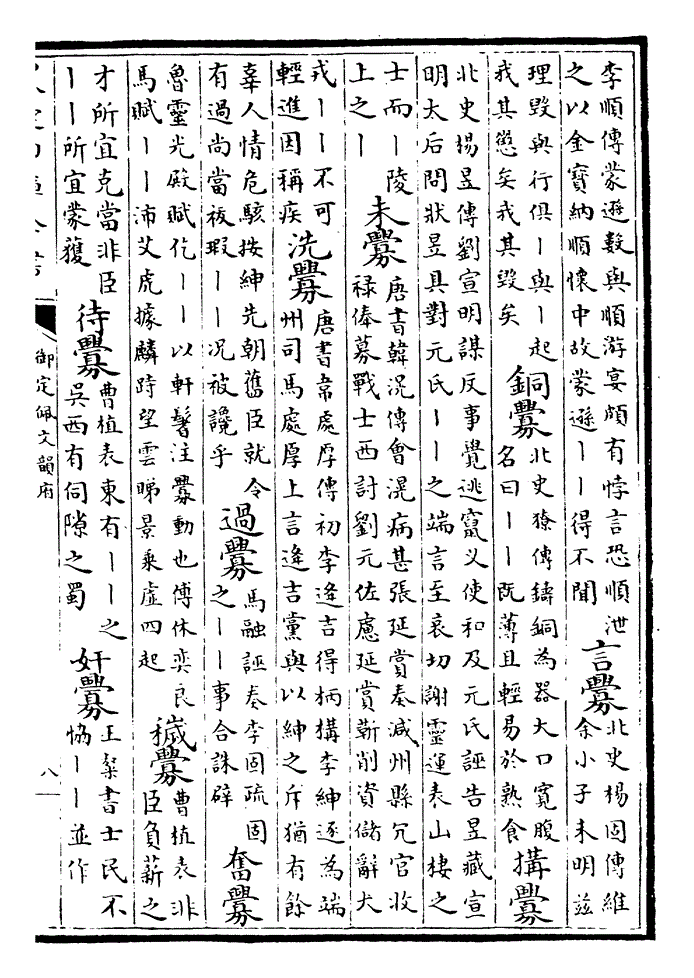 李順傳蒙遜數與順游宴頗有悖言恐順泄
之以金寶納順懷中故蒙遜丨丨得不聞
言釁
北史楊固傳維
余小子未明茲
理毀與行俱丨與丨起
我其懲矣我其毀矣
銅釁
北史獠傳鑄銅為器大口寬腹
名曰丨丨既薄且輕易於熟食
搆釁
北史楊昱傳劉宣明謀反事覺逃竄义使和及元氏誣告昱藏宣
明太后問狀昱具對元氏丨丨之端言至哀切謝靈運表山棲之
士而丨陵
上之丨
未釁
唐書韓滉傳會滉病甚張延賞奏減州縣冗官收
祿俸募戰士西討劉元佐慮延賞靳削資儲辭犬
戎丨丨不可
輕進因稱疾
洗釁
唐書韋處厚傳初李逢吉得柄搆李紳逐為端
州司馬處厚上言逢吉黨與以紳之斥猶有餘
辜人情危駭按紳先朝舊臣就令
有過尚當祓瑕丨丨况被讒乎
過釁
馬融誣奏李固疏固
之丨丨事合誅辟
奮釁
魯靈光殿賦仡丨丨以軒鬐注釁動也傅休奕良
馬賦丨丨沛艾虎據麟跱望雲睇景乘虛四起
穢釁
曹植表非
臣負薪之
才所宜克當非臣
丨丨所宜蒙獲
待釁
曹植表東有丨丨之
吳西有伺隙之蜀
奸釁
王粲書士民不
恊丨丨並作
御定佩文韻府
八